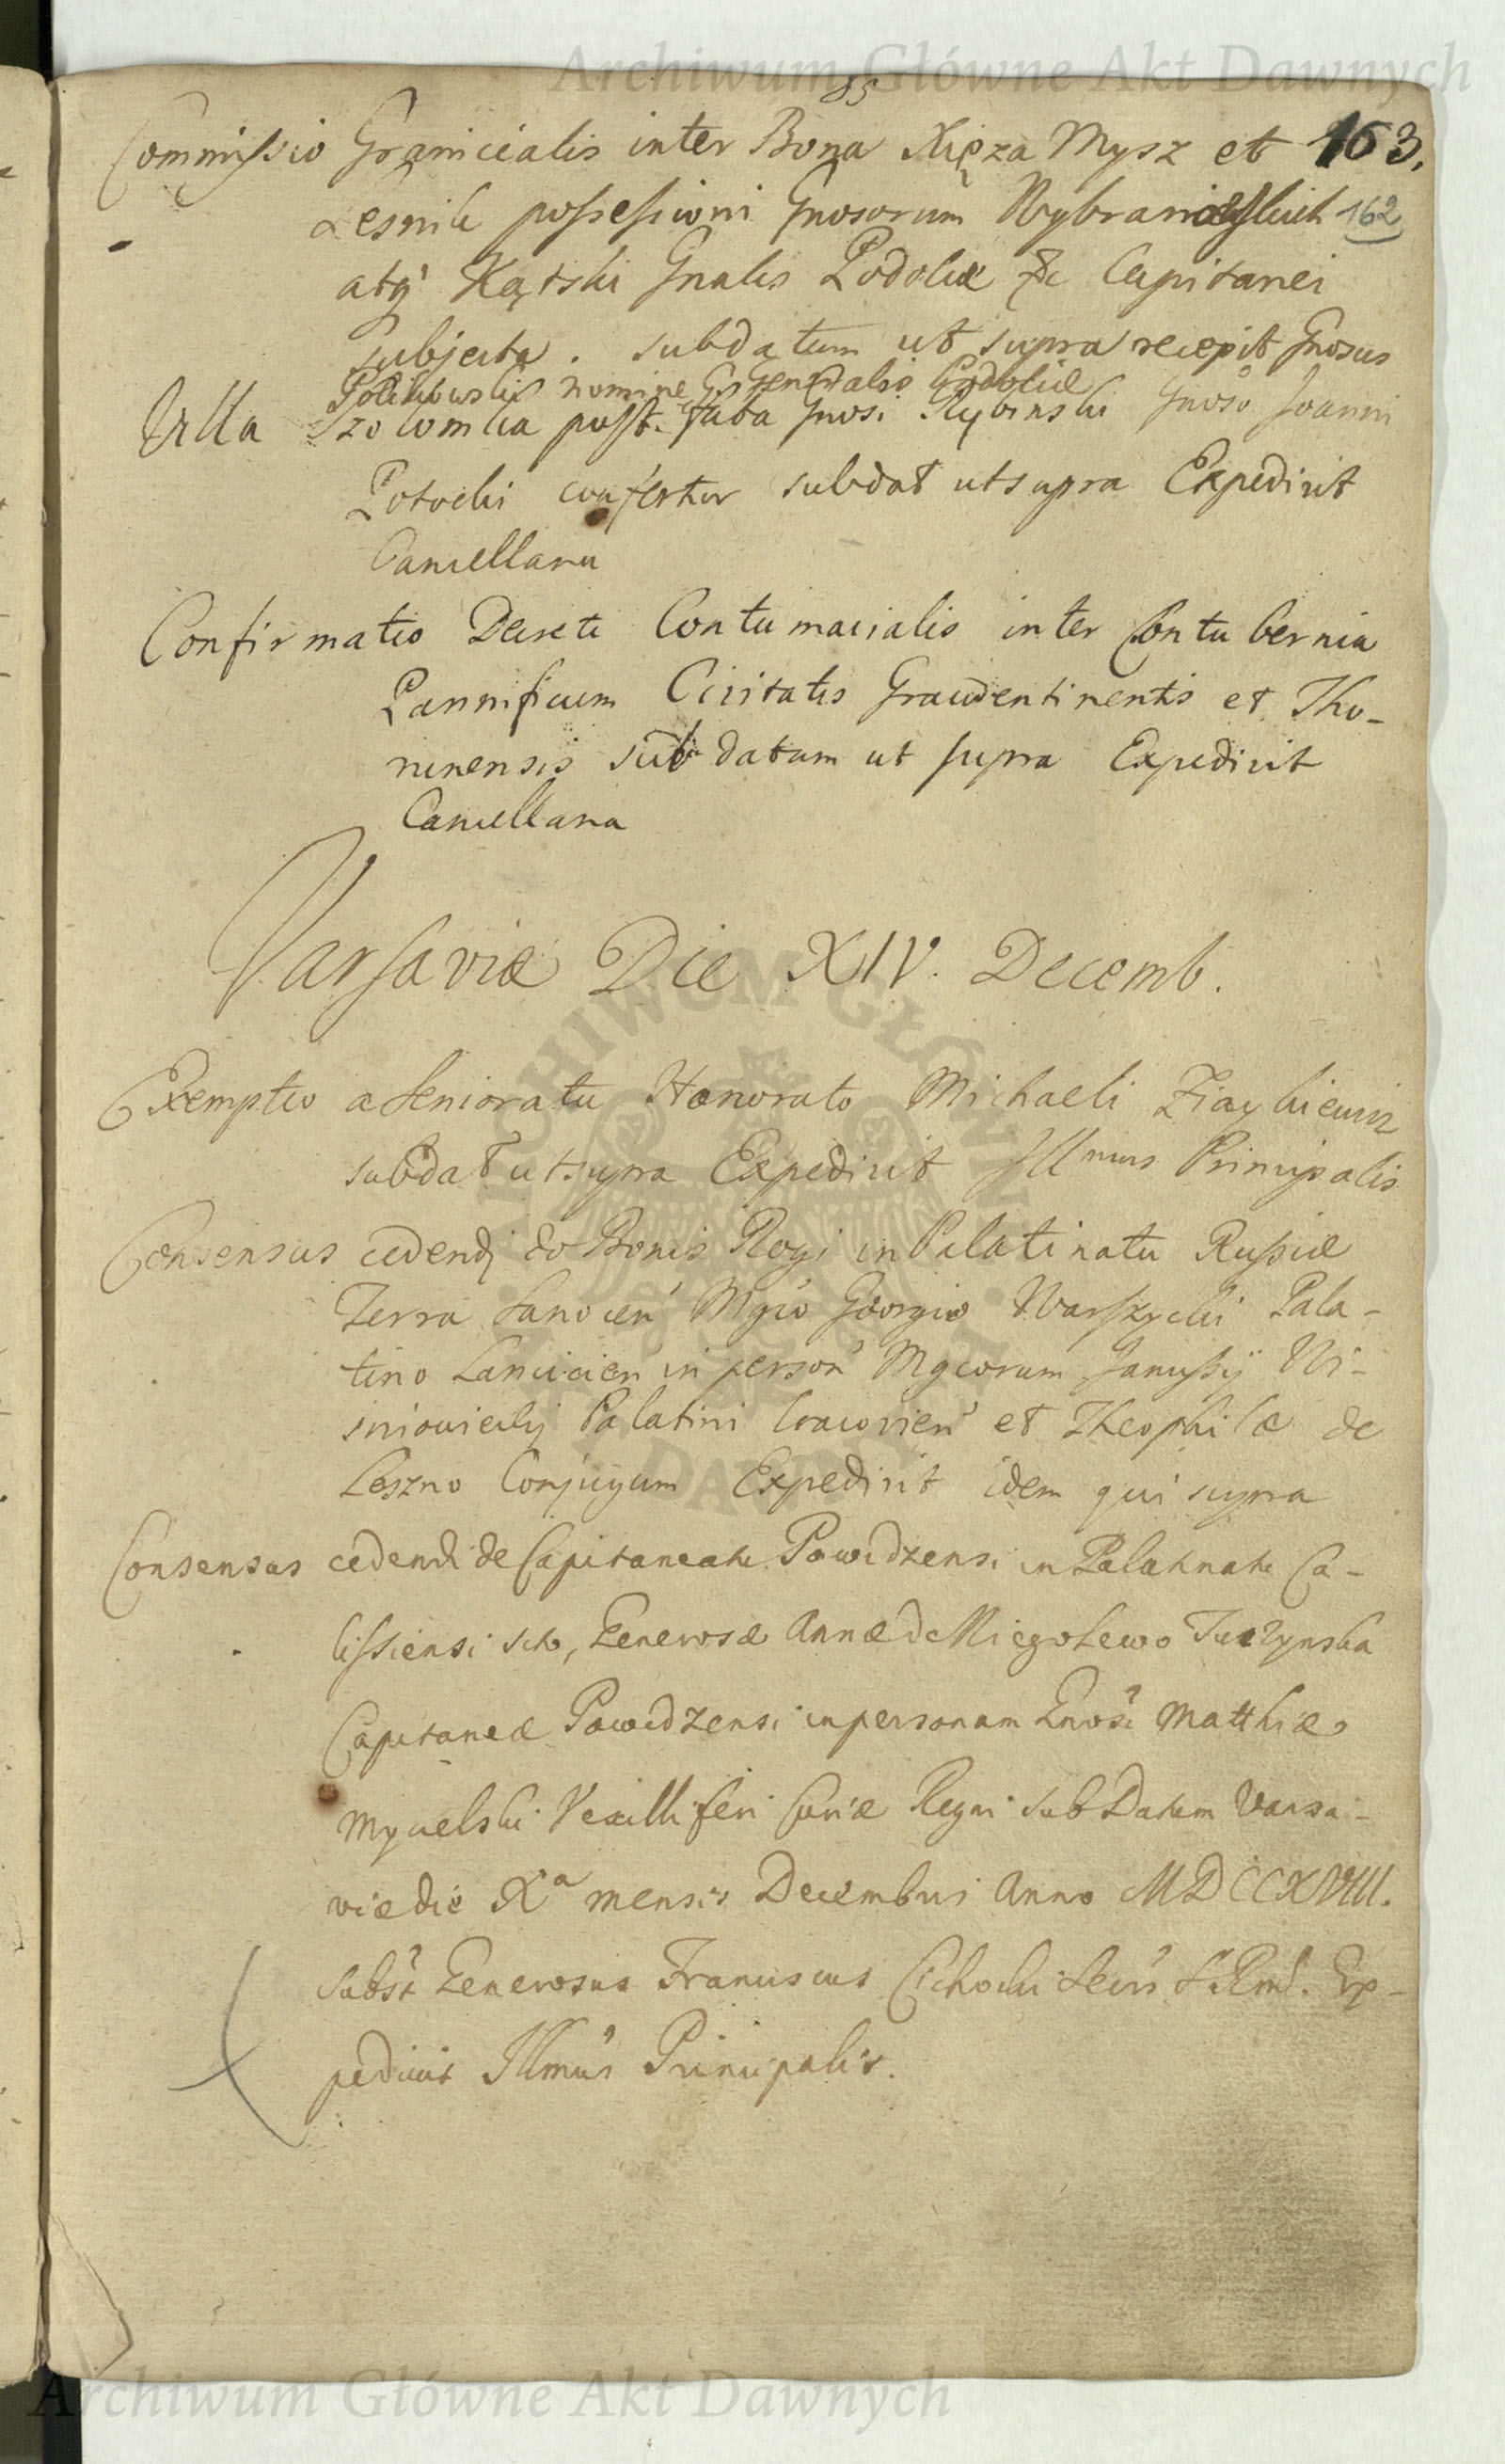 Archiwum Główne Akt Dawnych
85
Commissio Granicialis inter Bona Xięza Mysz et 163.
Lesnik possessioni Gnosorum Wybranowskich 162
atq Kątski Gnalis Podoliæ &c Capitanei
subjecta. subdatum ut supra recepit Gnosus
nomine G Generalis Podoliæ
Villa Szolomia post fata Gnosi Rybinski Gnoso Joanni
Potocki confertur subdat ut supra Expedivit
Cancellaria
Confirmatio Decreti Contumacialis inter Contubernia
Pannificum Civitatis Graudentinentis et Tho-
runensis sub datum ut supra Expedivit
Cancellaria
Varsaviæ Die XIV. Decemb.
Exemptio a Senioratu Honorato Michaeli
subdat ut supra Expedivit Illmus Principalis
Consensus cedendi de Bonis Rogi in Palatinatu Russiæ
Terra Sanocen Mgco Georgio Warszycki Pala-
tino Lancicien in person Mgcorum Janussij Wi-
sniowiecky Palatini Cracovien et Theophilæ de
Leszno Conjugum Expedivit idem qui supra
Consensus cedendi de Capitaneatu Powidzensi in Palatinatu Ca-
lissiensi sito, Generosæ Annæ de Miegolewo Tuczynska
Capitaneæ Powidzensi in personam Gnosi Matthiæ
Mycielski Vexilliferi Curiæ Regni sub Datum Varsa-
viæ die Xa mensis Decembris Anno MDCCXVIII.
Subst Generosus Franciscus Cichocki Secrs S R Mtis. Ex-
pedivit Illmus Principalis.
ARCHIWUM GŁÓWNE AKT DAWNYCH
Archiwum Główne Akt Dawnych